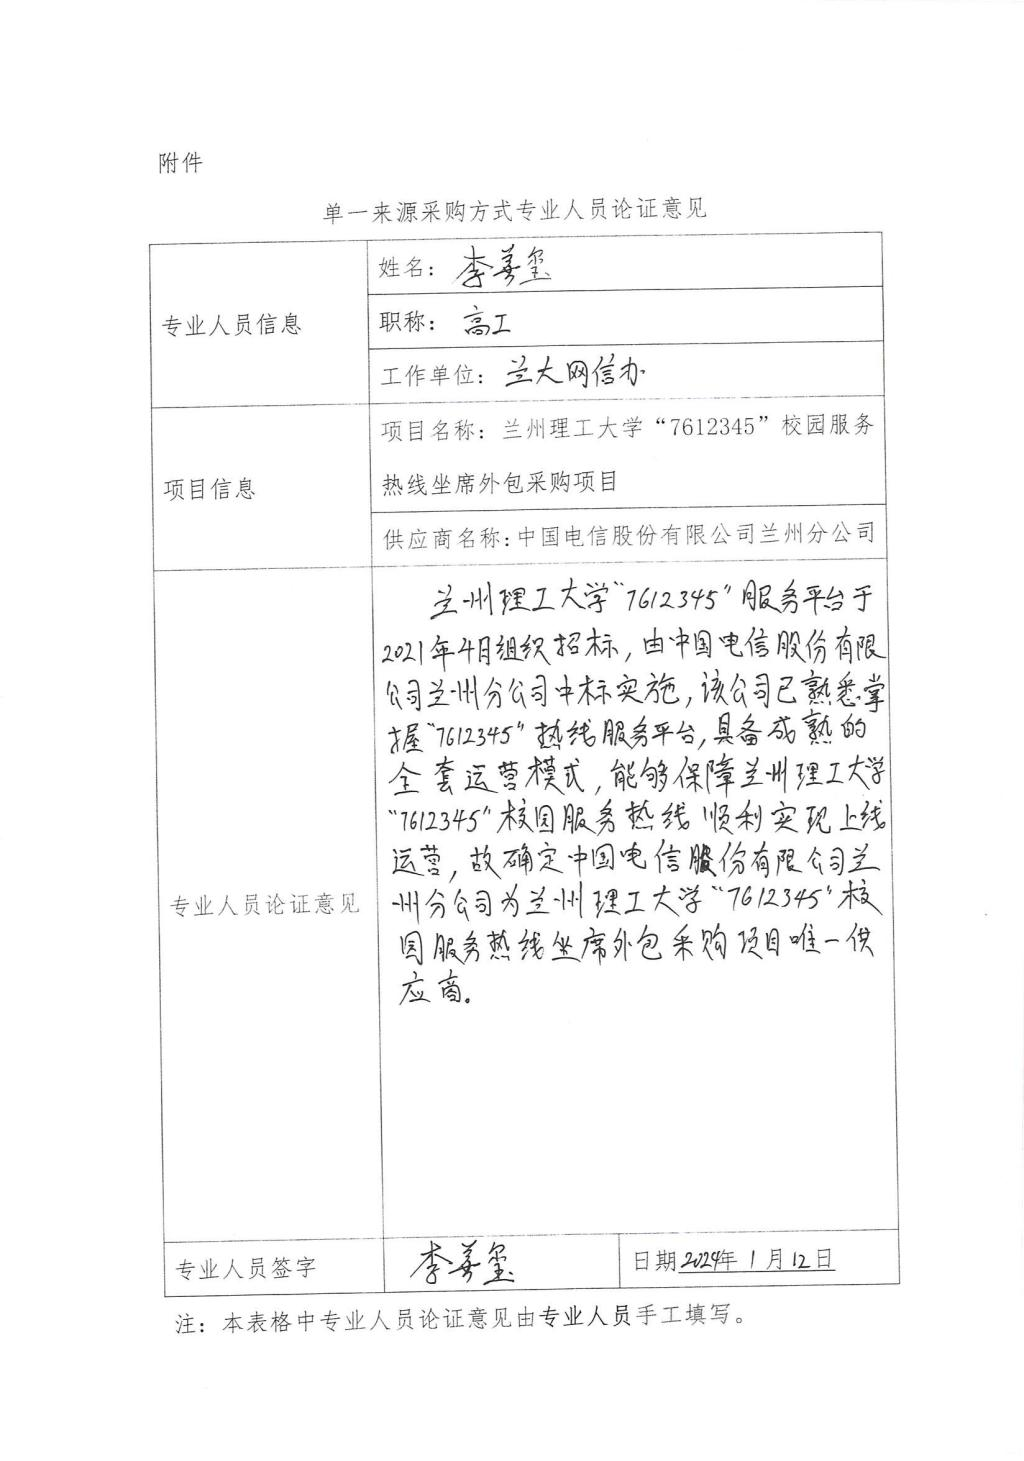 附件
单一来源采购方式专业人员论证意见
专业人员信息
姓名：李善玺
职称：高工
工作单位：兰大网信办
项目信息
项目名称：兰州理工大学“7612345”校园服务
热线坐席外包采购项目
供应商名称：中国电信股份有限公司兰州分公司
专业人员论证意见
兰州理工大学“7612345”服务平台于
2021年4月组织招标，由中国电信股份有限
公司兰州分公司中标实施，该公司已熟悉掌
握“7612345”热线服务平台，具备成熟的
全套运营模式，能够保障兰州理工大学
“7612345”校园服务热线顺利实现上线
运营，故确定中国电信股份有限公司兰
州分公司为兰州理工大学“7612345”校
园服务热线坐席外包采购项目唯一供
应商。
专业人员签字
李善玺
日期2024年1月12日
注：本表格中专业人员论证意见由专业人员手工填写。